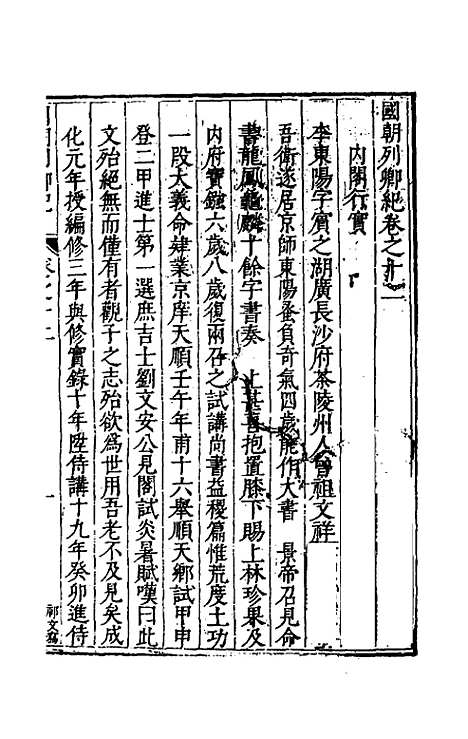 國朝列卿紀卷之十一
內閣行實
李東陽字賓之湖廣長沙府茶陵州人曾祖文祥
吾衛遂居京師東陽蚤負奇氣四歲能作大書　景帝召見命
書龍鳳龜麟十餘字書奏　上甚喜抱置膝下賜上林珍果及
內府寶鏹六歲八歲復兩召之試講尚書益稷篇惟荒度土功
一段大義命肄業京庠天順壬午年甫十六舉順天鄉試甲申
登二甲進士第一選庶吉士劉文安公見閣試炎暑賦嘆曰此
文殆絕無而僅有者觀子之志殆欲為世用吾老不及見矣成
化元年授編修三年與修實錄十年陞侍講十九年癸卯進侍
卷之十一
一
祁文寫